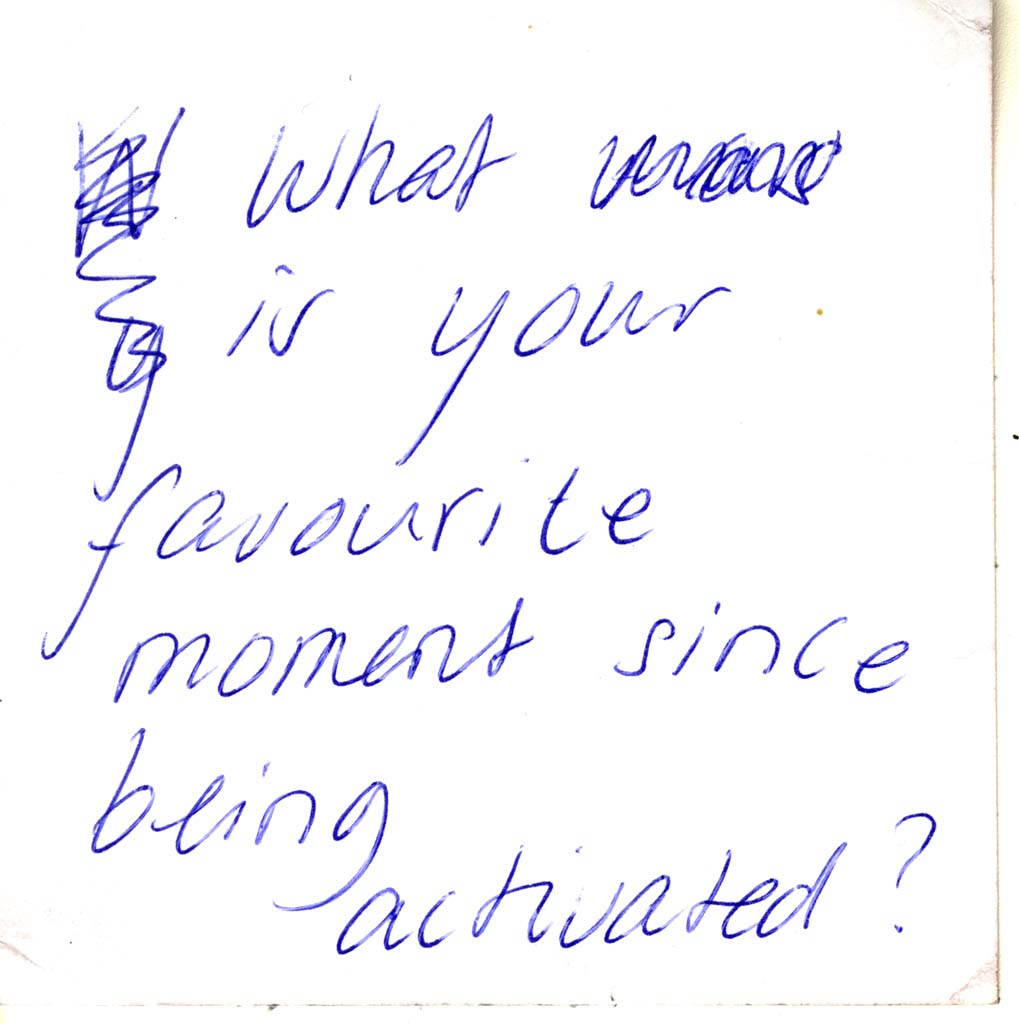 What
is your
favourite
moment since
being
activated?